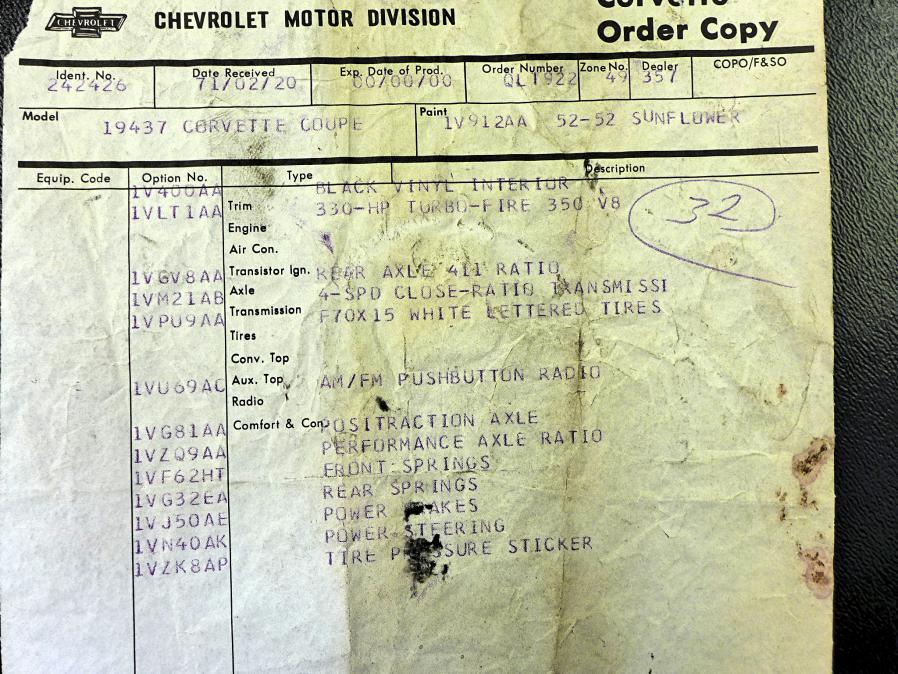 CHEVROLET
CHEVROLET MOTOR DIVISION
Corvette
Order Copy
Ident. No. Date Received Exp. Date of Prod. Order Number Zone No. Dealer COPO/F&SO
242426 71/02/20 00/00/00 QLT922 49 357
Model Paint
19437 CORVETTE COUPE 1V912AA 52-52 SUNFLOWER
Equip. Code Option No. Type Description
1V400AA BLACK VINYL INTERIOR
1VLT1AA Trim 330-HP TURBO-FIRE 350 V8
32
Engine
Air Con.
1VGV8AA Transistor Ign. REAR AXLE 411 RATIO
1VM21AB Axle 4-SPD CLOSE-RATIO TRANSMISSI
1VPU9AA Transmission F70X15 WHITE LETTERED TIRES
Tires
Conv. Top
1VU69AC Aux. Top AM/FM PUSHBUTTON RADIO
Radio
1VG81AA Comfort & Con. POSITRACTION AXLE
1VZQ9AA PERFORMANCE AXLE RATIO
1VF62HT FRONT SPRINGS
1VG32EA REAR SPRINGS
1VJ50AE POWER BRAKES
1VN40AK POWER STEERING
1VZK8AP TIRE PRESSURE STICKER